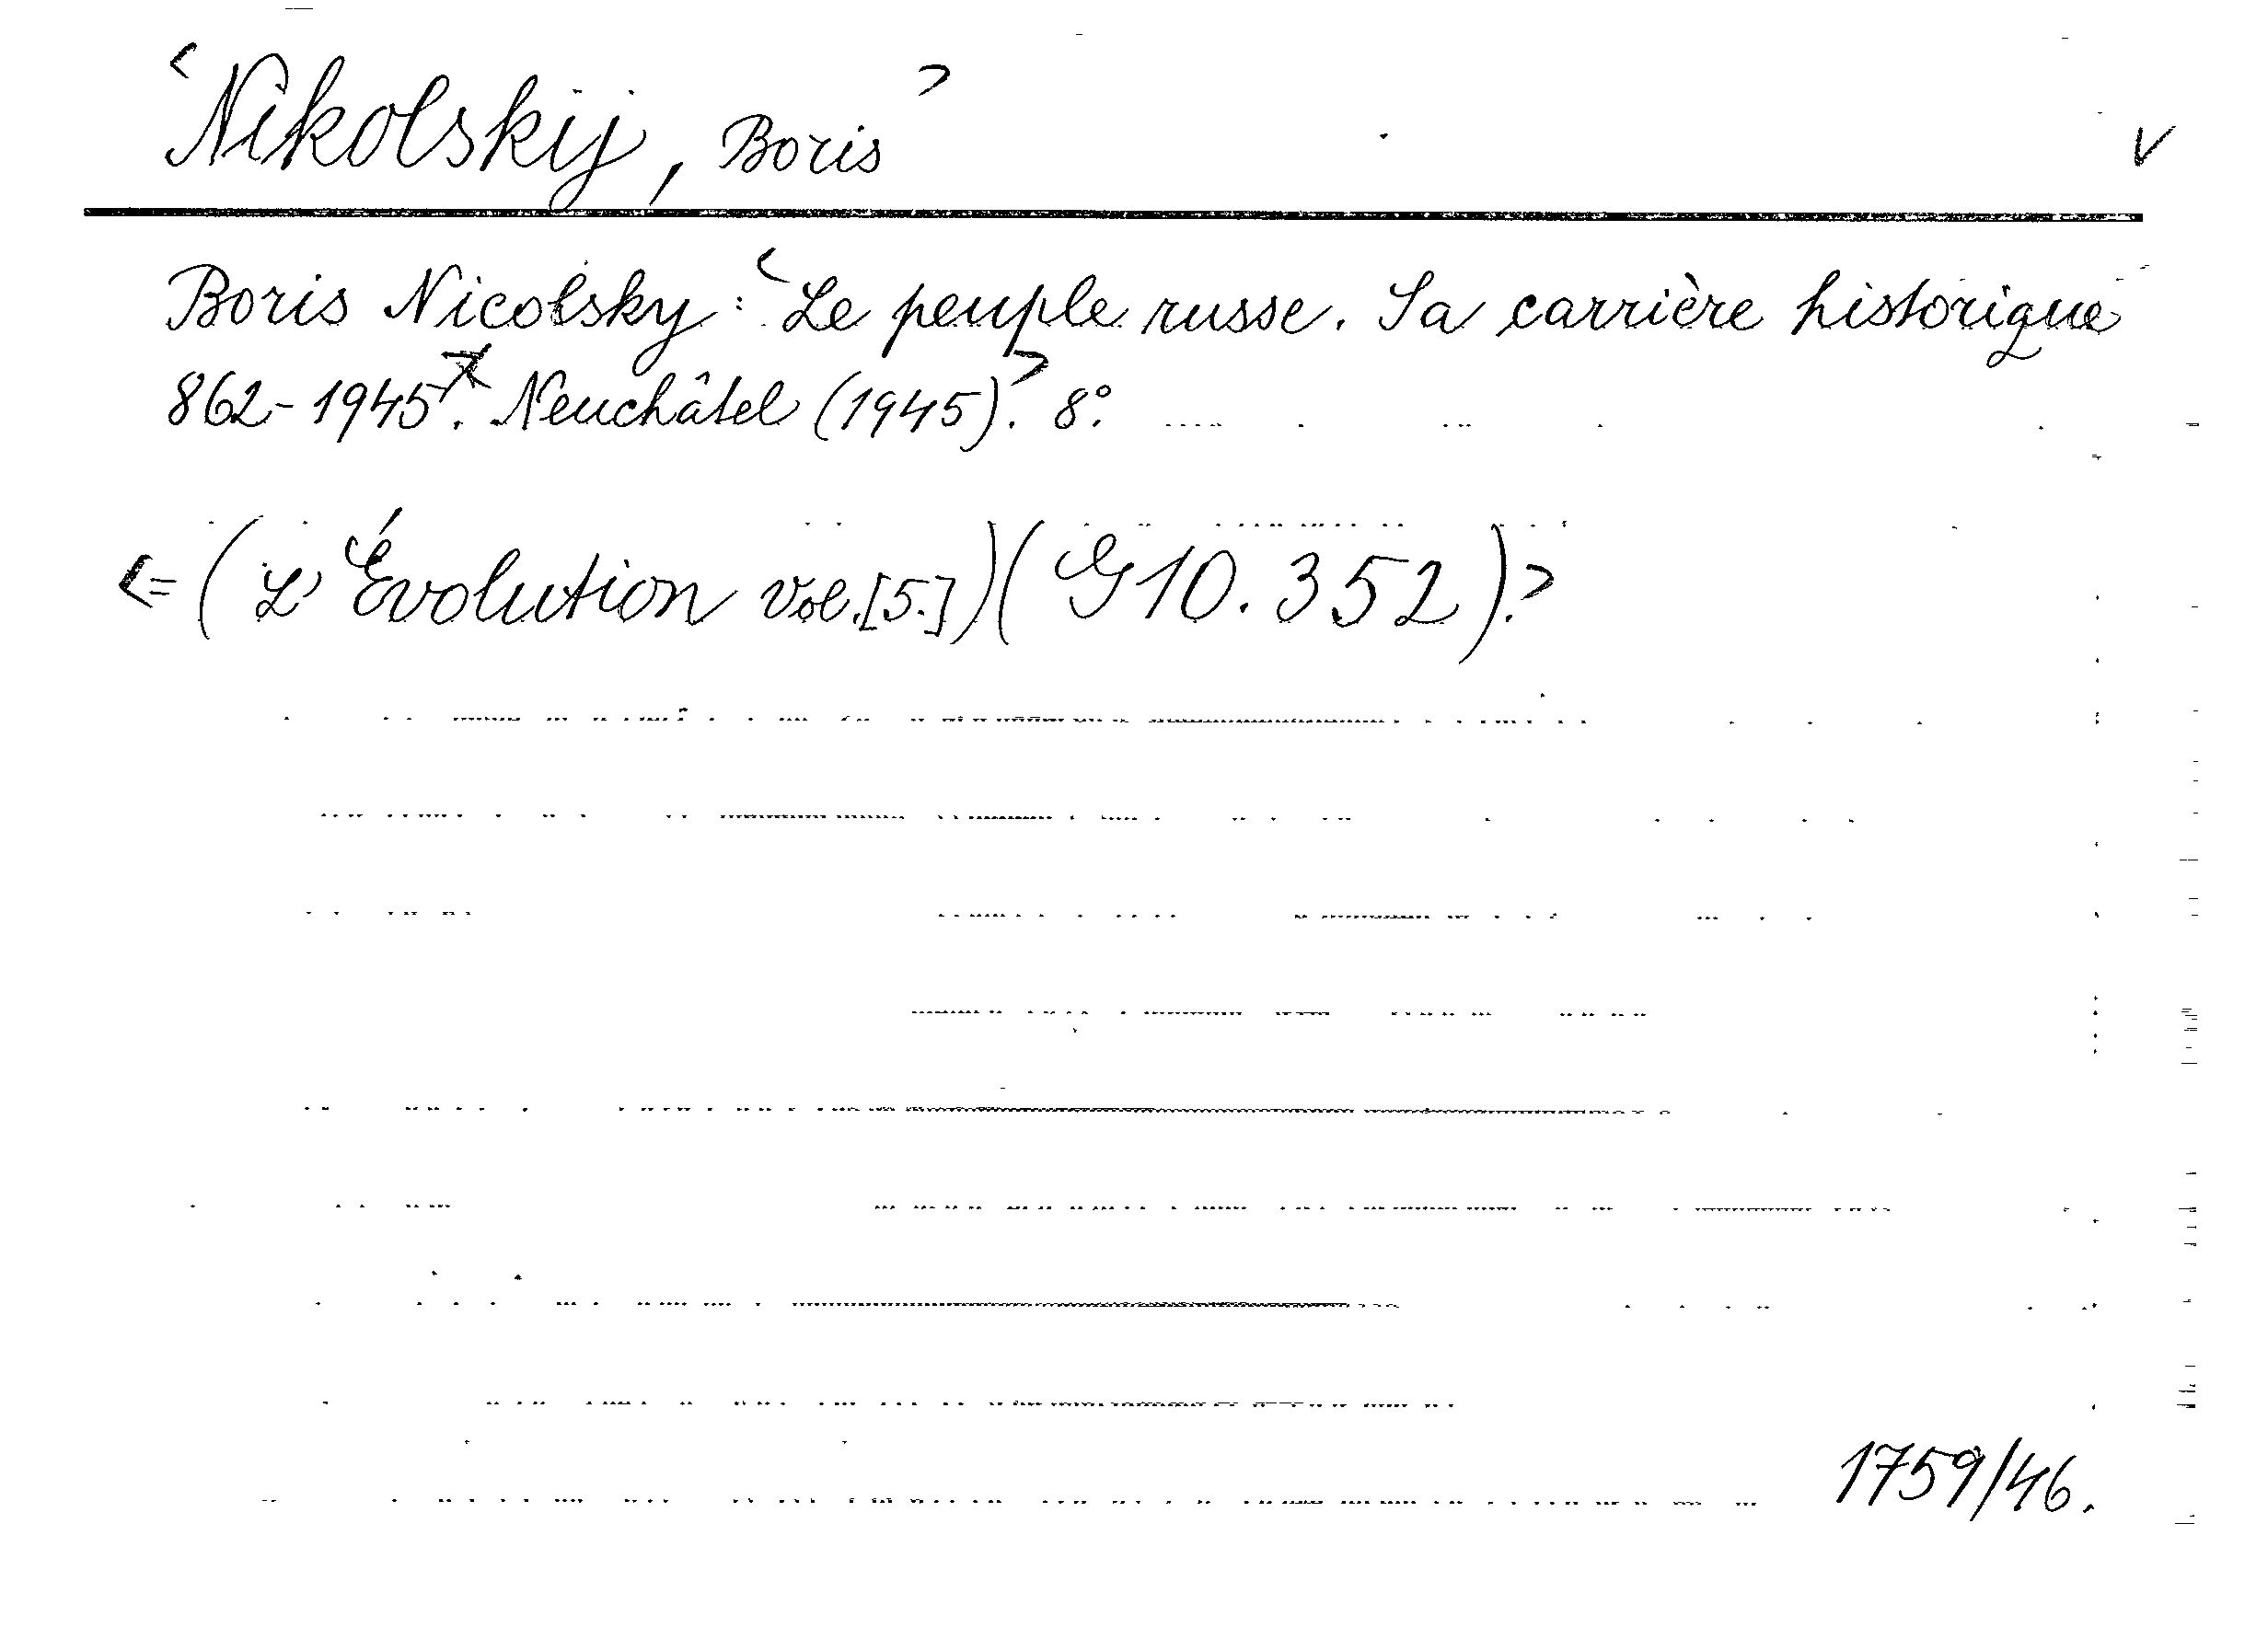 <Nikolskij, Boris> V
Boris Nicolsky: <Le peuple russe. Sa carrière historique
862-1945. Neuchâtel (1945).> 8°.
<= (L'Évolution vol.[5.]) (G 10.352).>
1759/46.